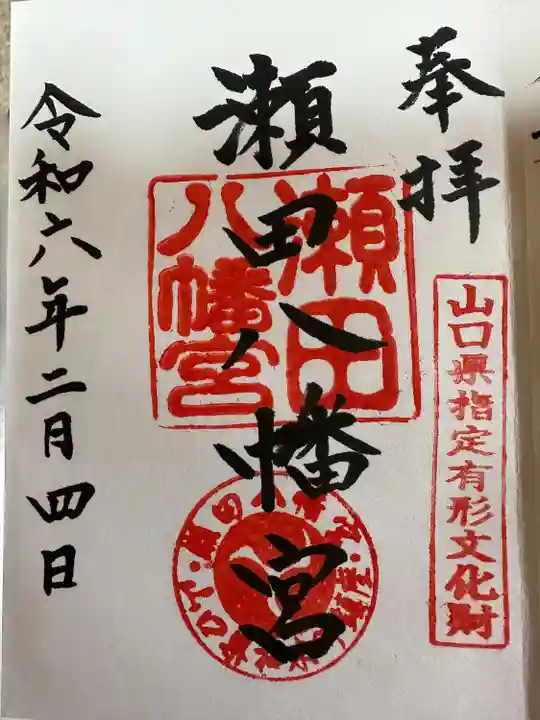 奉拝
山口県指定有形文化財
瀬田八幡宮
瀬田
八幡宮
令和六年二月四日